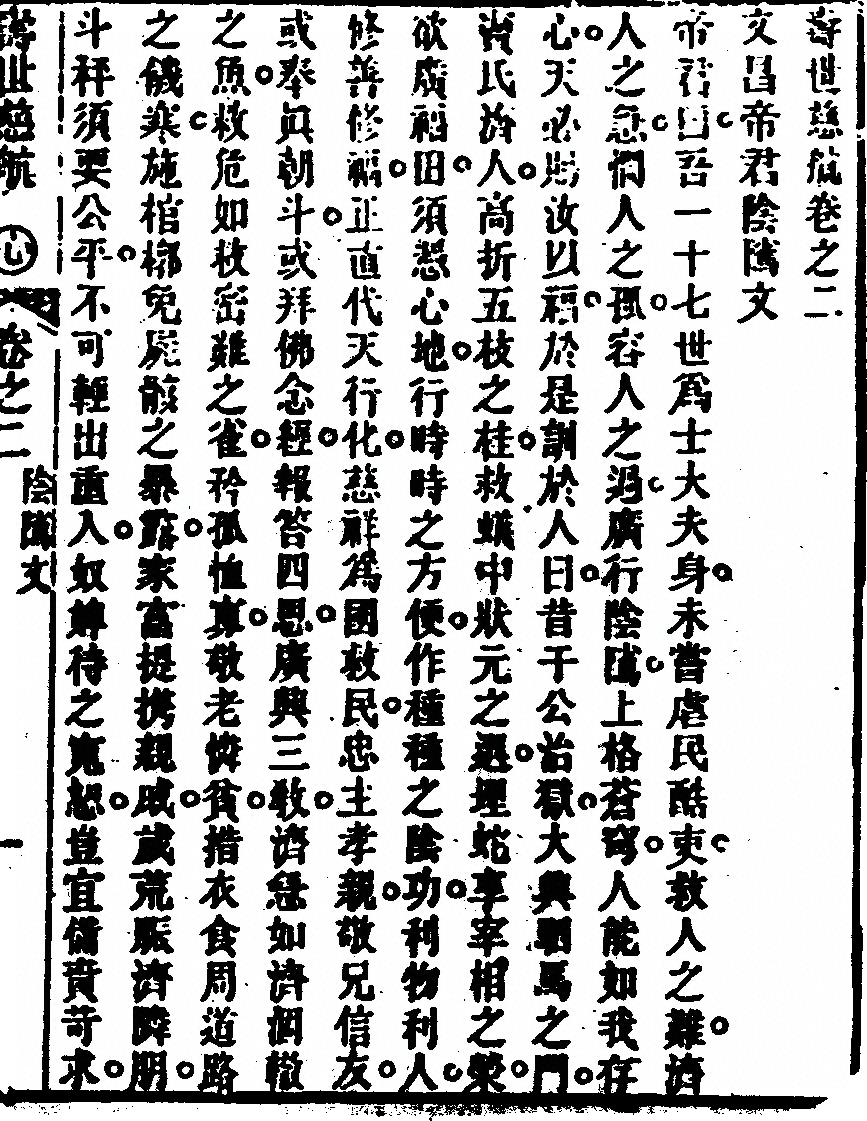 壽世慈航卷之二
文昌帝君陰隲文
帝君曰吾一十七世爲士大夫身未嘗虐民酷吏救人之難濟
人之急憫人之孤容人之過廣行陰隲上格蒼穹人能如我存
心天必賜汝以福於是訓於人曰昔于公治獄大興駟馬之門
竇氏濟人高折五枝之桂救蟻中狀元之選埋蛇享宰相之榮
欲廣福田須憑心地行時時之方便作種種之陰功利物利人
修善修福正直代天行化慈祥爲國救民忠主孝親敬兄信友
或奉眞朝斗或拜佛念經報答四恩廣興三教濟急如濟涸轍
之魚救危如救密雞之雀矜孤恤寡敬老憐貧措衣食周道路
之饑寒施棺槨免屍骸之暴露家富提携親戚歲荒賑濟隣朋
斗秤須要公平不可輕出重入奴婢待之寬恕豈宜備責苛求
壽世慈航 卷之二 陰隲文 一